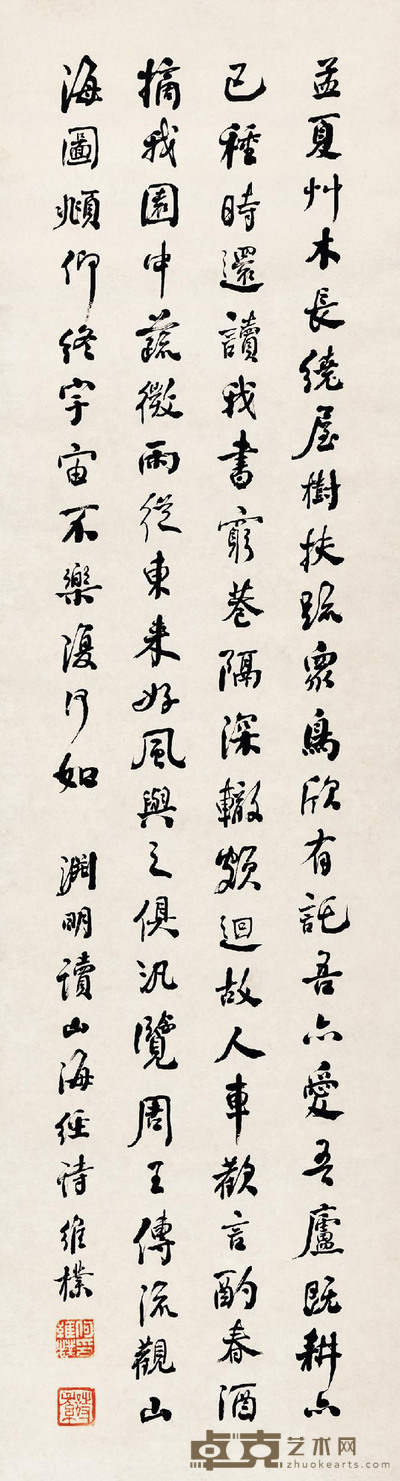 孟夏艸木長繞屋樹扶疏衆鳥欣有託吾亦愛吾廬既耕亦
已種時還讀我書窮巷隔深轍頗迴故人車歡言酌春酒
摘我園中蔬微雨從東来好風與之俱汎覽周王傳流觀山
海圖頫仰終宇宙不樂復何如 淵明讀山海經詩 維樸
何維樸印
卓克艺术网
www.zhuokearts.com